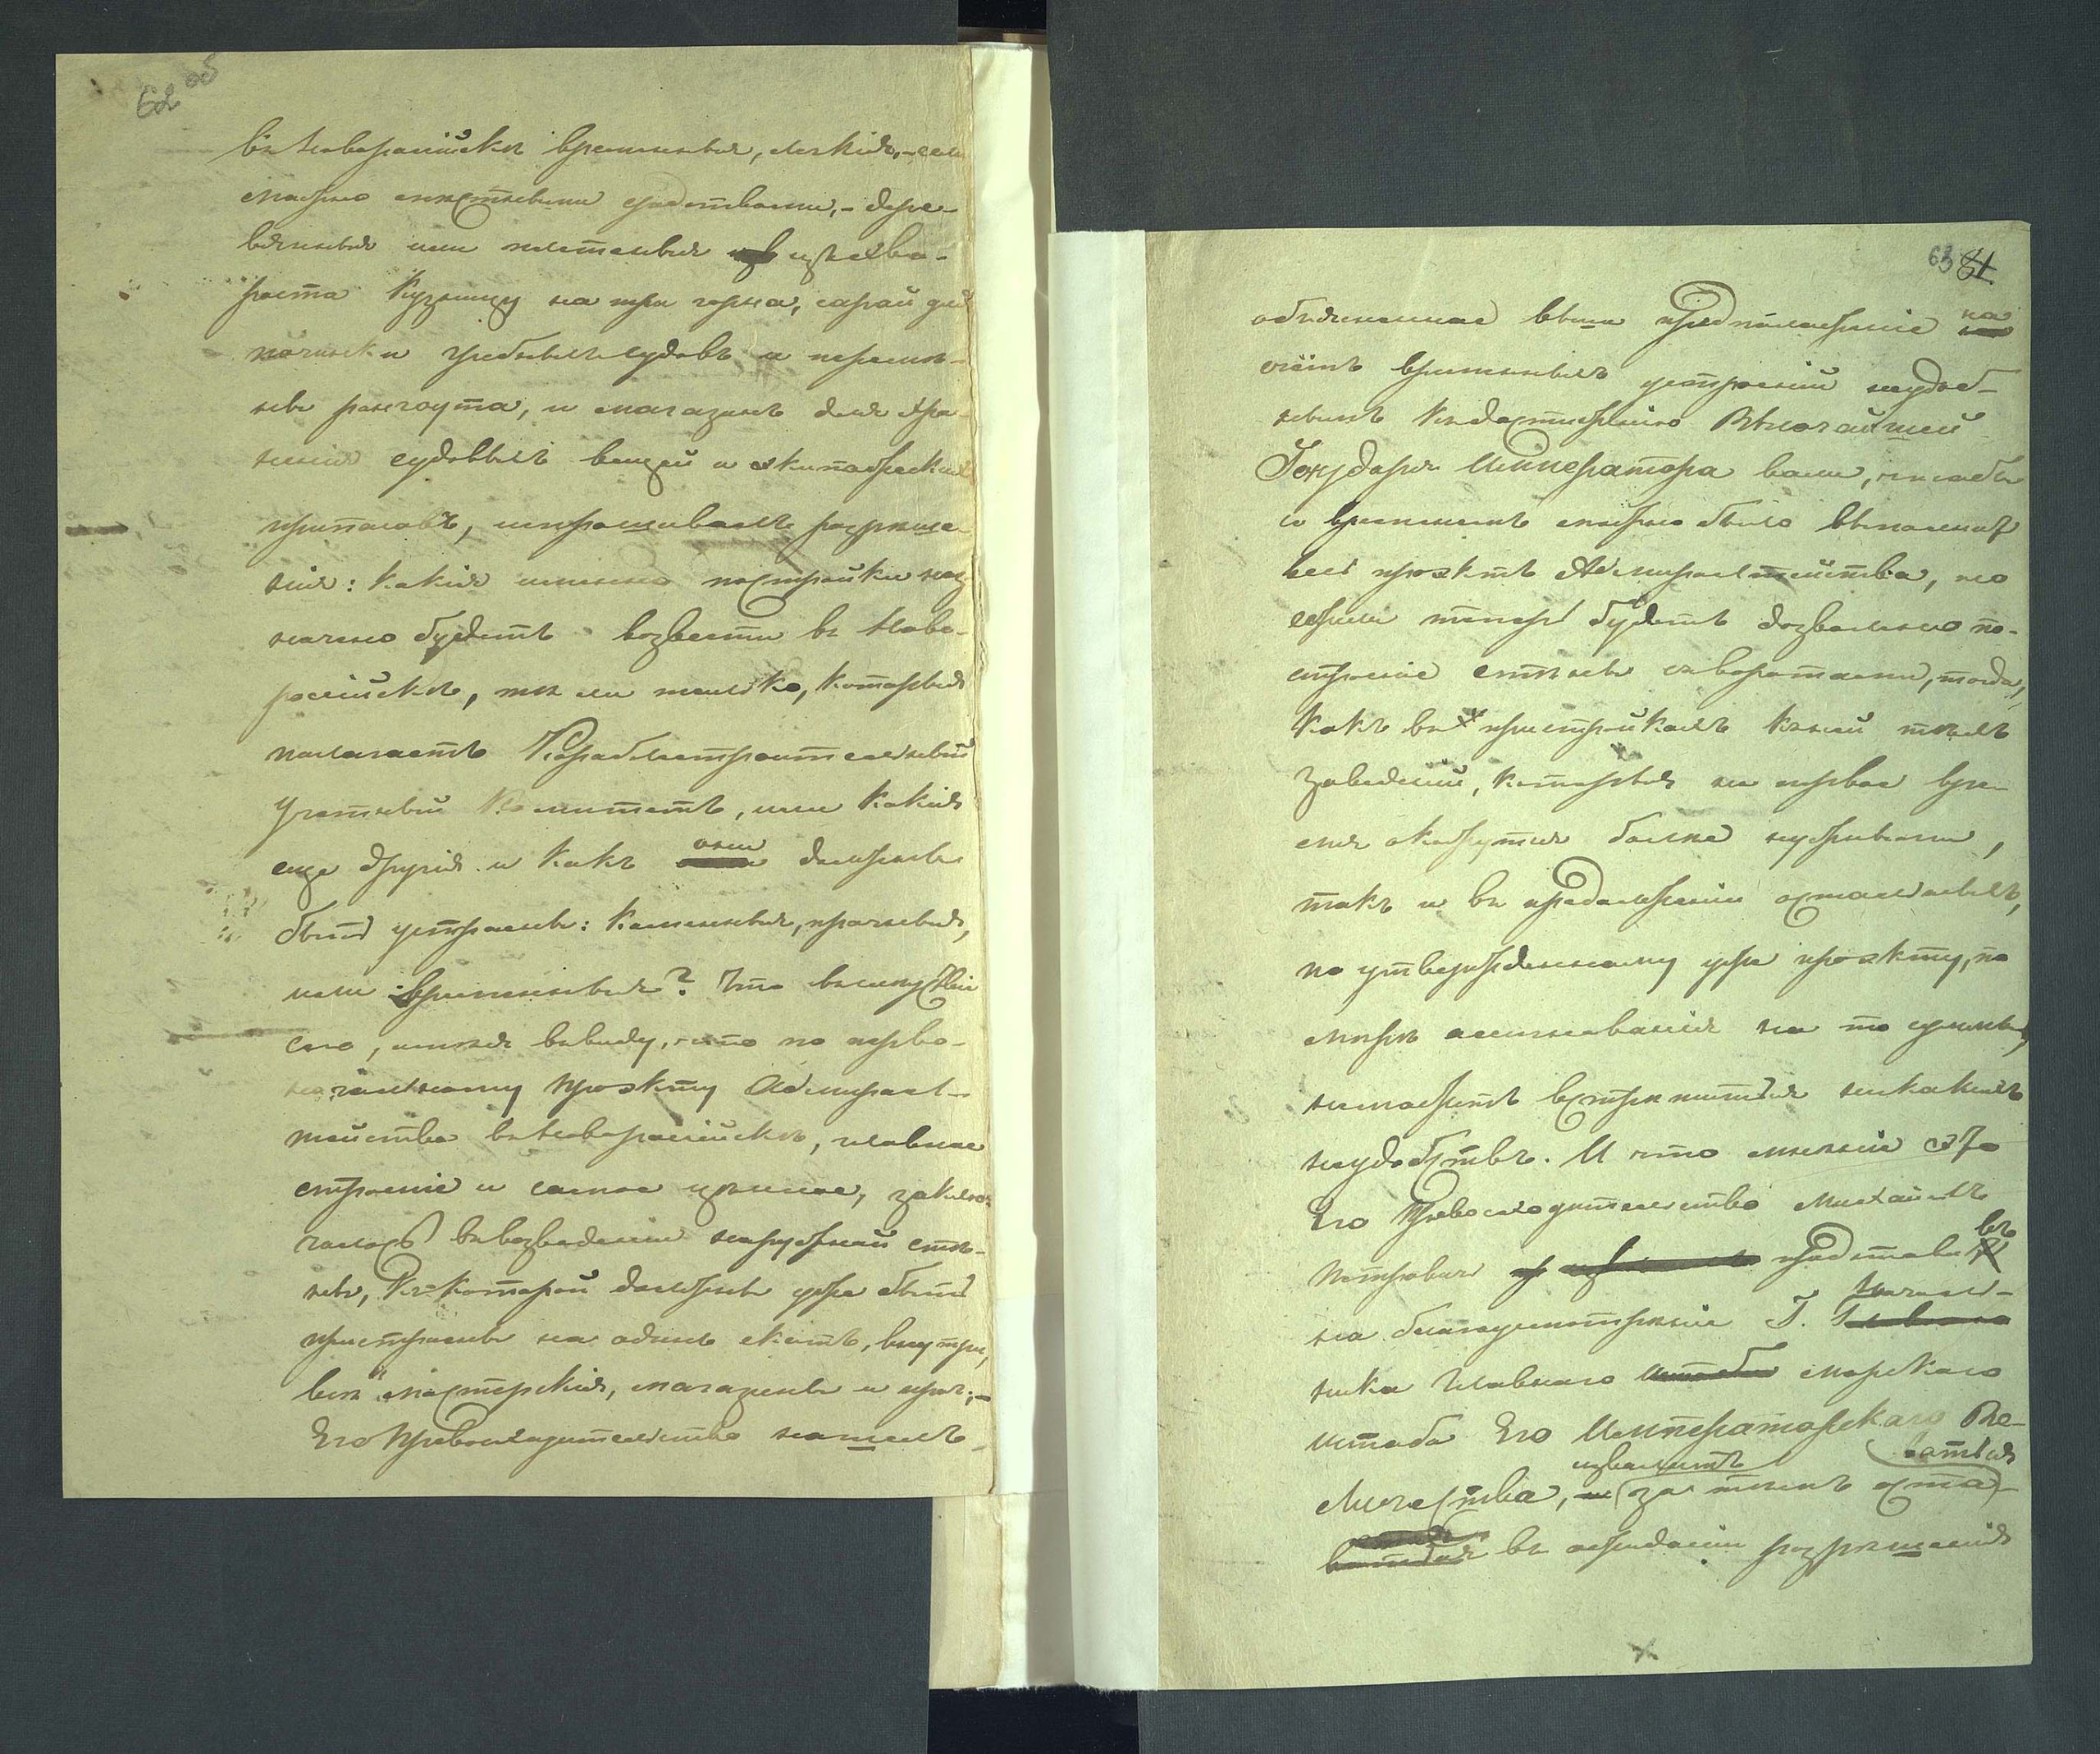 62 об
въ Новороссійскѣ временныя, легкія, - если
можно мѣстными средствами, - дере-
вянныя или плетеныя изъ хво-
роста кузницу на три горна, сарай для
починки гребныхъ судовъ и перемѣ-
ны рангоута, и магазинъ для хра-
ненія судовыхъ вещей и экипажескихъ
припасовъ, испрашиваетъ разрѣше-
нія: какія именно постройки наз-
начено будетъ возвести въ Ново-
россійскѣ, тѣ ли только, которыя
полагаетъ Кораблестроительный
Учетный Комитетъ, или какія
еще другія и какъ они должны
быть устроены: каменныя, прочныя,
или временныя? Что въ слѣдствіи
сего, имѣя въ виду, что по перво-
начальному проэкту Адмирал-
тейства въ Новороссійскѣ, главное
строеніе и самое цѣнное, заклю-
чалось въ возведеніи наружной стѣ-
ны, къ которой должны уже быть
пристроены на одинъ скатъ, внутри,
всѣ мастерскія, магазины и проч; -
Его Превосходительство нашелъ
63 81
объясненное выше предположеніе на
счетъ временныхъ устроеній неудоб-
нымъ къ достиженію Высочайшей
Государя Императора воли, чтобы
со временемъ можно было выполнить
весь проэктъ Адмиралтейства, но
ежели теперь будетъ дозволено по-
строеніе стѣны съ воротами, тогда,
какъ въ пристройкахъ къ ней тѣхъ
заведеній, которыя на первое вре-
мя окажутся болѣе нужными,
такъ и въ продолженіи остальныхъ,
по утвержденному уже проэкту, по
мѣрѣ ассигнованія на то суммъ,
не можетъ встрѣтиться никакихъ
неудобствъ. И что мнѣніе это
Его Превосходительство Михаилъ
Петровичъ представивъ
на благоусмотрѣніе Г. Началь-
ника Главнаго Морскаго
Штаба Его Императорскаго Ве-
личества, изволитъ за тѣмъ оста
ваться
въ ожиданіи разрѣшенія